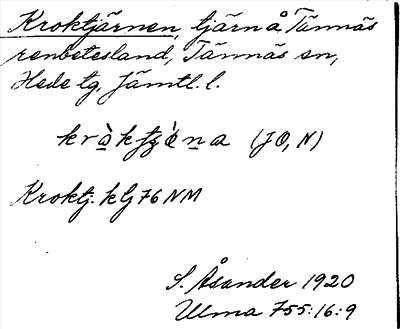 Kroktjärnen, tjärn å Tännäs
renbetesland, Tännäs sn,
Hede tg, Jämtl. l.
(JO, N)
Kroktj. kbj 76 NM
S. Åsander 1920
Ulma 755:16:9